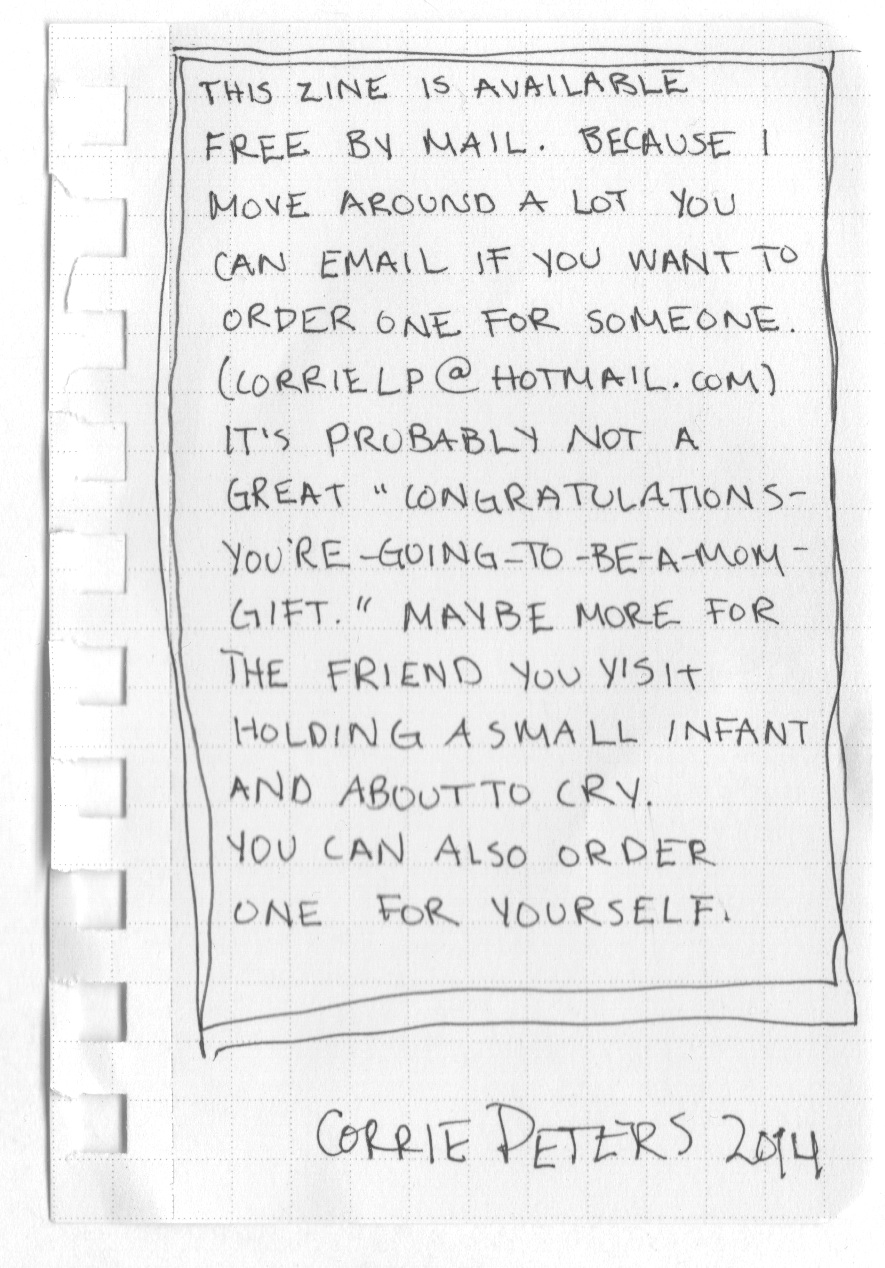 THIS ZINE IS AVAILABLE
FREE BY MAIL. BECAUSE I
MOVE AROUND A LOT YOU
CAN EMAIL IF YOU WANT TO
ORDER ONE FOR SOMEONE.
(CORRIELP@HOTMAIL.COM)
IT'S PROBABLY NOT A
GREAT "CONGRATULATIONS-
YOU'RE-GOING-TO-BE-A-MOM-
GIFT." MAYBE MORE FOR
THE FRIEND YOU VISIT
HOLDING A SMALL INFANT
AND ABOUT TO CRY.
YOU CAN ALSO ORDER
ONE FOR YOURSELF.
CORRIE PETERS 2014